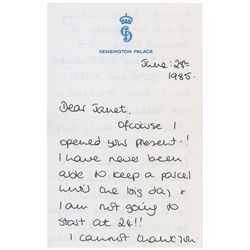 KENSINGTON PALACE
June: 28th
1985.
Dear Janet,
Ofcourse I
opened your present-!
I have never been
able to keep a parcel
until the big day &
I am not going to
start at 24!!
I cannot thank you